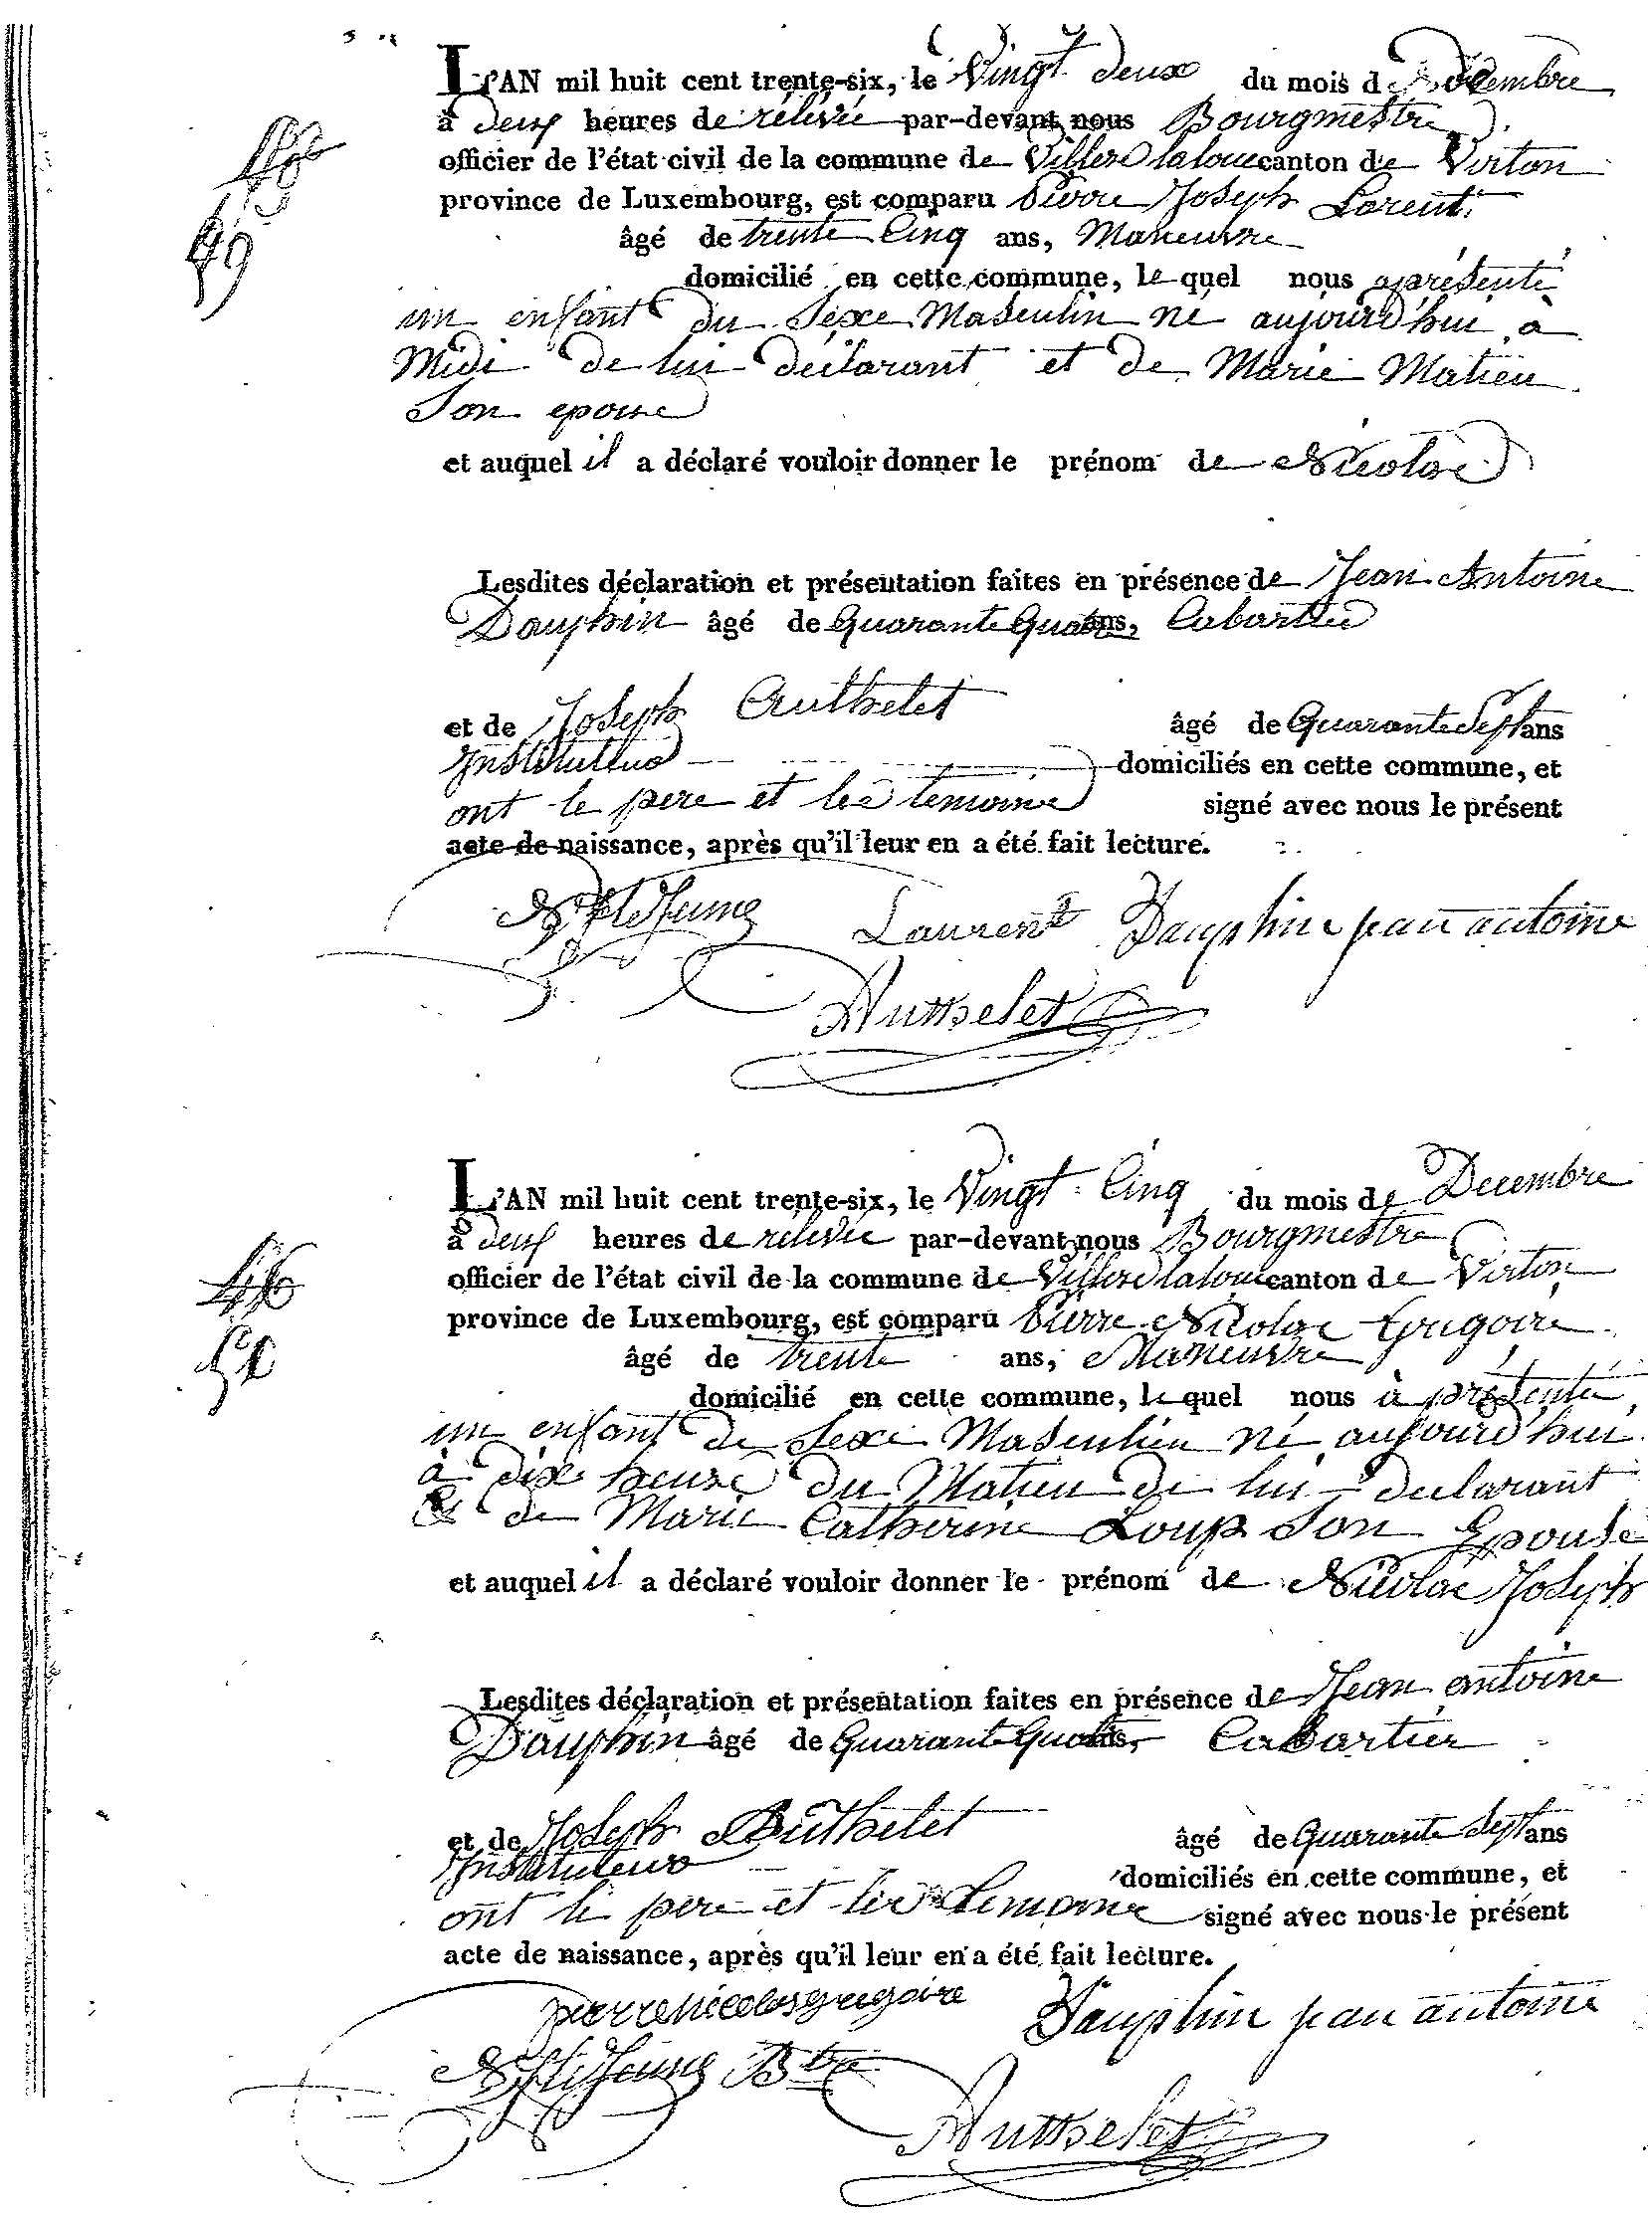 L'AN mil huit cent trente-six, le Vingt deux du mois de Decembre
à deux heures de rélévée par-devant nous Bourgmestre
officier de l'état civil de la commune de Villers la loue canton de Virton
province de Luxembourg, est comparu Pierre Joseph Lorent
49
âgé de trente Cinq ans, Maneuvre
domicilié en cette commune, le quel nous a présenté
un enfant du Sexe Masculin né aujourd'hui à
Midi de lui déclarant et de Marie Matieu
Son epouse
et auquel il a déclaré vouloir donner le prénom de Nicolas
Lesdites déclaration et présentation faites en présence de Jean Antoine
Dauphin âgé de Quarante Quatre ans, Cabartier
et de Joseph Authelet âgé de Quarante Sept ans
Instituteur domiciliés en cette commune, et
ont le pere et les temoins signé avec nous le présent
acte de naissance, après qu'il leur en a été fait lecture.
Laurent Dauphin jean antoine
Authelet
L'AN mil huit cent trente-six, le Vingt Cinq du mois de Decembre
à deux heures de rélévée par-devant nous Bourgmestre
officier de l'état civil de la commune de Villers la loue canton de Virton
46
province de Luxembourg, est comparu Pierre Nicolas Grégoire
âgé de trente ans, Maneuvre
domicilié en cette commune, le quel nous à présenté
un enfant de Sexe Masculin né aujourd'hui
à dix heures du Matin de lui declarant
Et de Marie Catherine Loup Son Epouse
et auquel il a déclaré vouloir donner le prénom de Nicolas Joseph
Lesdites déclaration et présentation faites en présence de Jean antoine
Dauphin âgé de Quarante Quatre ans, Cabartier
et de Joseph Authelet âgé de Quarante Sept ans
Instituteur domiciliés en cette commune, et
ont le pere et les temoins signé avec nous le présent
acte de naissance, après qu'il leur en a été fait lecture.
pierre nicolas gregoire Dauphin jean antoine
Authelet